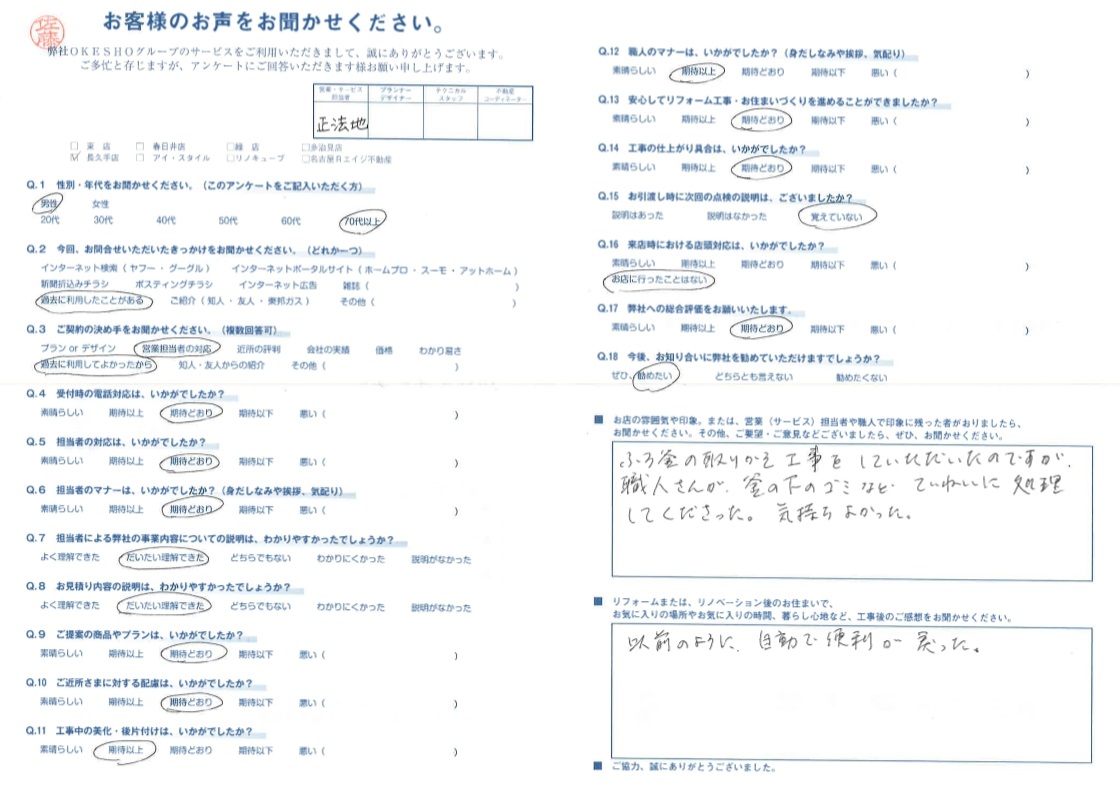 お客様のお声をお聞かせください。
佐藤
弊社OKESHOグループのサービスをご利用いただきまして、誠にありがとうございます。
ご多忙と存じますが、アンケートにご回答いただきます様お願い申し上げます。
営業・サービス担当者 プランナーデザイナー テクニカルスタッフ 不動産コーディネーター
正法地
□ 東 店 □ 春日井店 □緑 店 □多治見店
☑ 長久手店 □ アイ・スタイル □リノキューブ □名古屋Rエイジ不動産
Q.1 性別・年代をお聞かせください。（このアンケートをご記入いただく方）
男性 女性
20代 30代 40代 50代 60代 70代以上
Q.2 今回、お問合せいただいたきっかけをお聞かせください。（どれか一つ）
インターネット検索（ ヤフー ・ グーグル ） インターネットポータルサイト（ ホームプロ ・ スーモ ・ アットホーム ）
新聞折込みチラシ ポスティングチラシ インターネット広告 雑誌（ ）
過去に利用したことがある ご紹介（ 知人 ・ 友人 ・ 東邦ガス ） その他（ ）
Q.3 ご契約の決め手をお聞かせください。（複数回答可）
プラン or デザイン 営業担当者の対応 近所の評判 会社の実績 価格 わかり易さ
過去に利用してよかったから 知人・友人からの紹介 その他（ ）
Q.4 受付時の電話対応は、いかがでしたか？
素晴らしい 期待以上 期待どおり 期待以下 悪い（ ）
Q.5 担当者の対応は、いかがでしたか？
素晴らしい 期待以上 期待どおり 期待以下 悪い（ ）
Q.6 担当者のマナーは、いかがでしたか？（身だしなみや挨拶、気配り）
素晴らしい 期待以上 期待どおり 期待以下 悪い（ ）
Q.7 担当者による弊社の事業内容についての説明は、わかりやすかったでしょうか？
よく理解できた だいたい理解できた どちらでもない わかりにくかった 説明がなかった
Q.8 お見積り内容の説明は、わかりやすかったでしょうか？
よく理解できた だいたい理解できた どちらでもない わかりにくかった 説明がなかった
Q.9 ご提案の商品やプランは、いかがでしたか？
素晴らしい 期待以上 期待どおり 期待以下 悪い（ ）
Q.10 ご近所さまに対する配慮は、いかがでしたか？
素晴らしい 期待以上 期待どおり 期待以下 悪い（ ）
Q.11 工事中の美化・後片付けは、いかがでしたか？
素晴らしい 期待以上 期待どおり 期待以下 悪い（ ）
Q.12 職人のマナーは、いかがでしたか？（身だしなみや挨拶、気配り）
素晴らしい 期待以上 期待どおり 期待以下 悪い（ ）
Q.13 安心してリフォーム工事・お住まいづくりを進めることができましたか？
素晴らしい 期待以上 期待どおり 期待以下 悪い（ ）
Q.14 工事の仕上がり具合は、いかがでしたか？
素晴らしい 期待以上 期待どおり 期待以下 悪い（ ）
Q.15 お引渡し時に次回の点検の説明は、ございましたか？
説明はあった 説明はなかった 覚えていない
Q.16 来店時における店頭対応は、いかがでしたか？
素晴らしい 期待以上 期待どおり 期待以下 悪い（ ）
お店に行ったことはない
Q.17 弊社への総合評価をお願いいたします。
素晴らしい 期待以上 期待どおり 期待以下 悪い（ ）
Q.18 今後、お知り合いに弊社を勧めていただけますでしょうか？
ぜひ、勧めたい どちらとも言えない 勧めたくない
■ お店の雰囲気や印象。または、営業（サービス）担当者や職人で印象に残った者がおりましたら、
お聞かせください。その他、ご要望・ご意見などございましたら、ぜひ、お聞かせください。
ふろ釜の取りかえ工事をしていただいたのですが、
職人さんが、釜の下のゴミなど、ていねいに処理
してくださった。気持ちよかった。
■ リフォームまたは、リノベーション後のお住まいで、
お気に入りの場所やお気に入りの時間、暮らし心地など、工事後のご感想をお聞かせください。
以前のように、自動で便利が戻った。
■ ご協力、誠にありがとうございました。